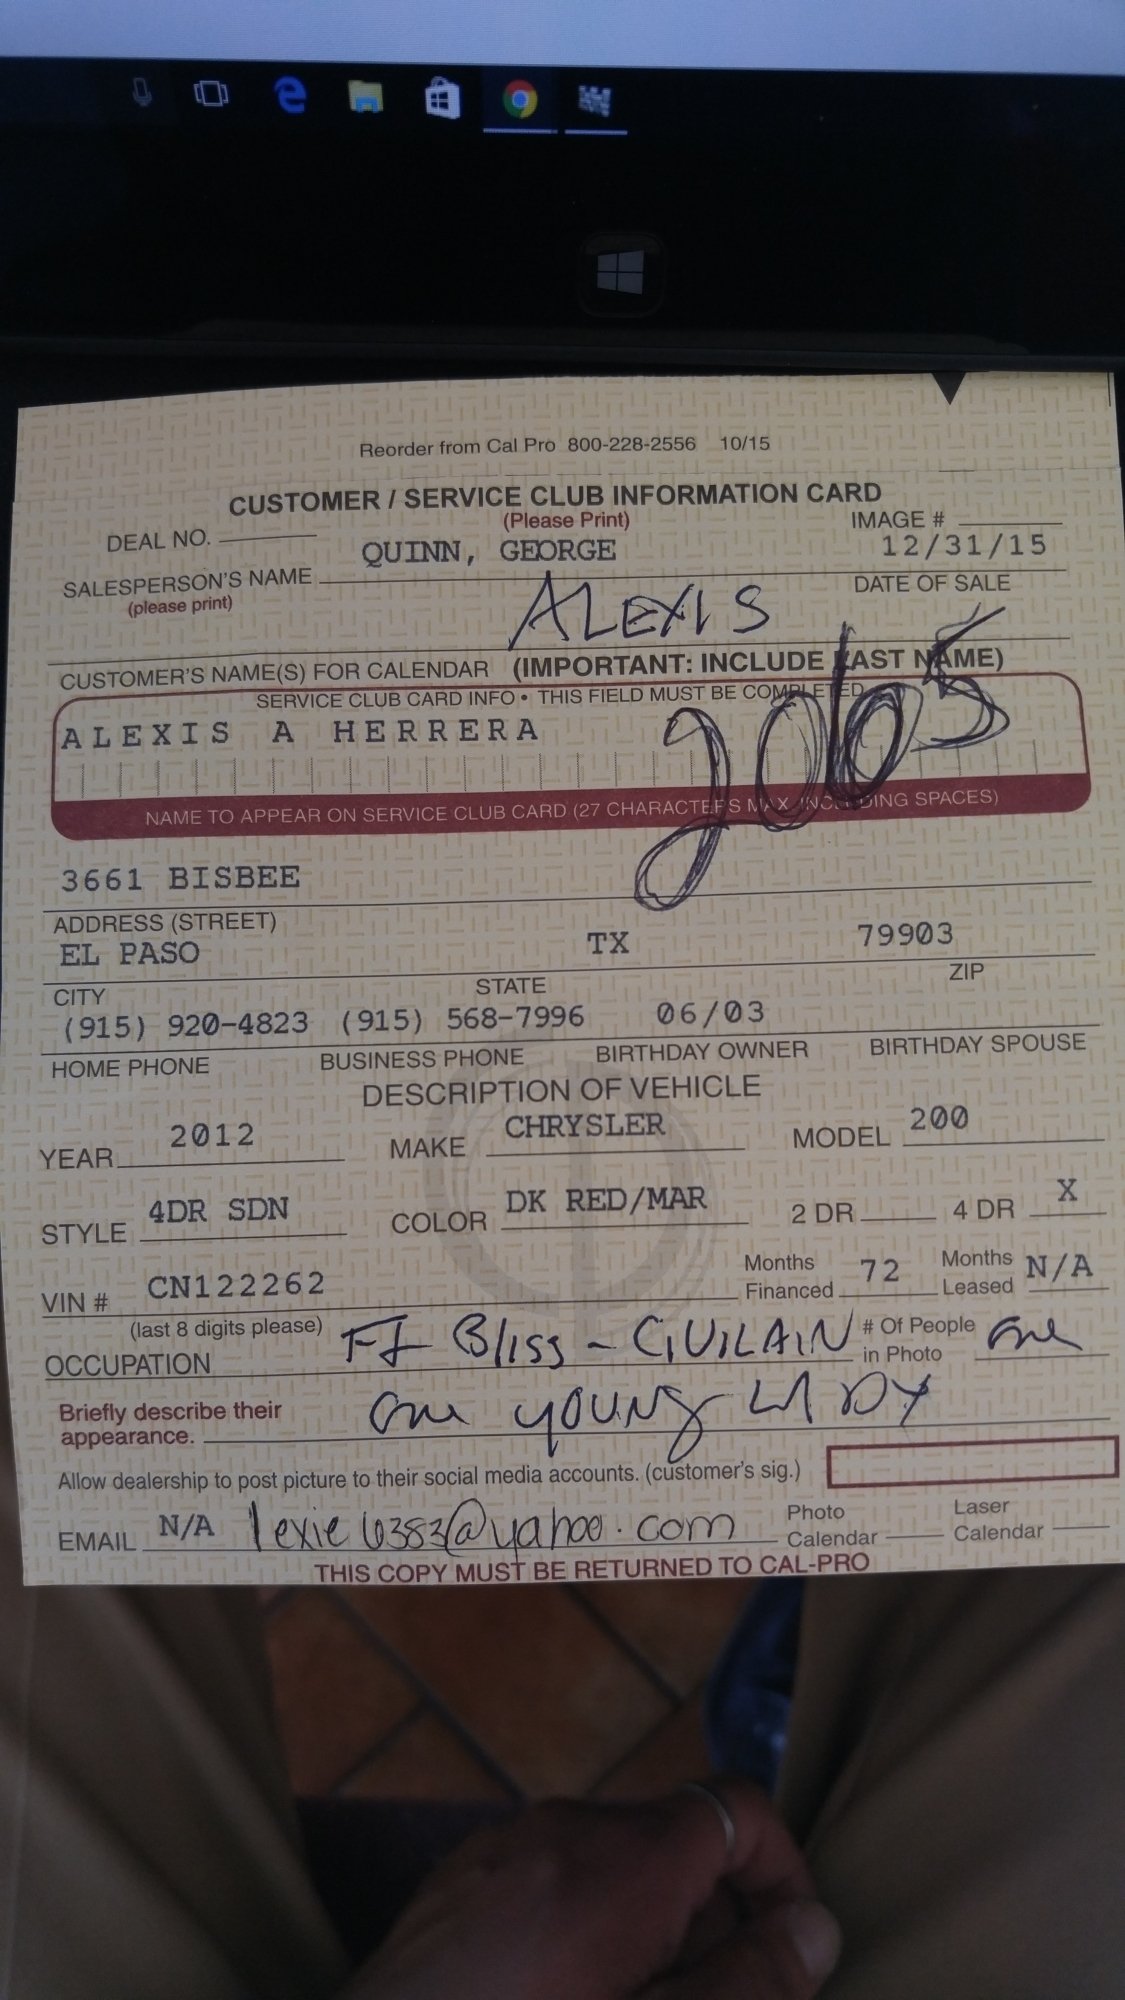 Reorder from Cal Pro 800-228-2556 10/15
CUSTOMER / SERVICE CLUB INFORMATION CARD
(Please Print)
DEAL NO. IMAGE #
QUINN, GEORGE 12/31/15
SALESPERSON'S NAME DATE OF SALE
(please print)
ALEXIS
CUSTOMER'S NAME(S) FOR CALENDAR (IMPORTANT: INCLUDE LAST NAME)
SERVICE CLUB CARD INFO • THIS FIELD MUST BE COMPLETED
ALEXIS A HERRERA
NAME TO APPEAR ON SERVICE CLUB CARD (27 CHARACTERS MAX INCLUDING SPACES)
3661 BISBEE
ADDRESS (STREET)
EL PASO TX 79903
CITY STATE ZIP
(915) 920-4823 (915) 568-7996 06/03
HOME PHONE BUSINESS PHONE BIRTHDAY OWNER BIRTHDAY SPOUSE
DESCRIPTION OF VEHICLE
YEAR 2012 MAKE CHRYSLER MODEL 200
STYLE 4DR SDN COLOR DK RED/MAR 2 DR 4 DR X
VIN # CN122262 Months Financed 72 Months Leased N/A
(last 8 digits please)
OCCUPATION Ft Bliss - CIVILAIN # Of People in Photo one
Briefly describe their appearance. one YOUNG LADY
Allow dealership to post picture to their social media accounts. (customer's sig.)
EMAIL N/A lexie6383@yahoo.com Photo Calendar Laser Calendar
THIS COPY MUST BE RETURNED TO CAL-PRO